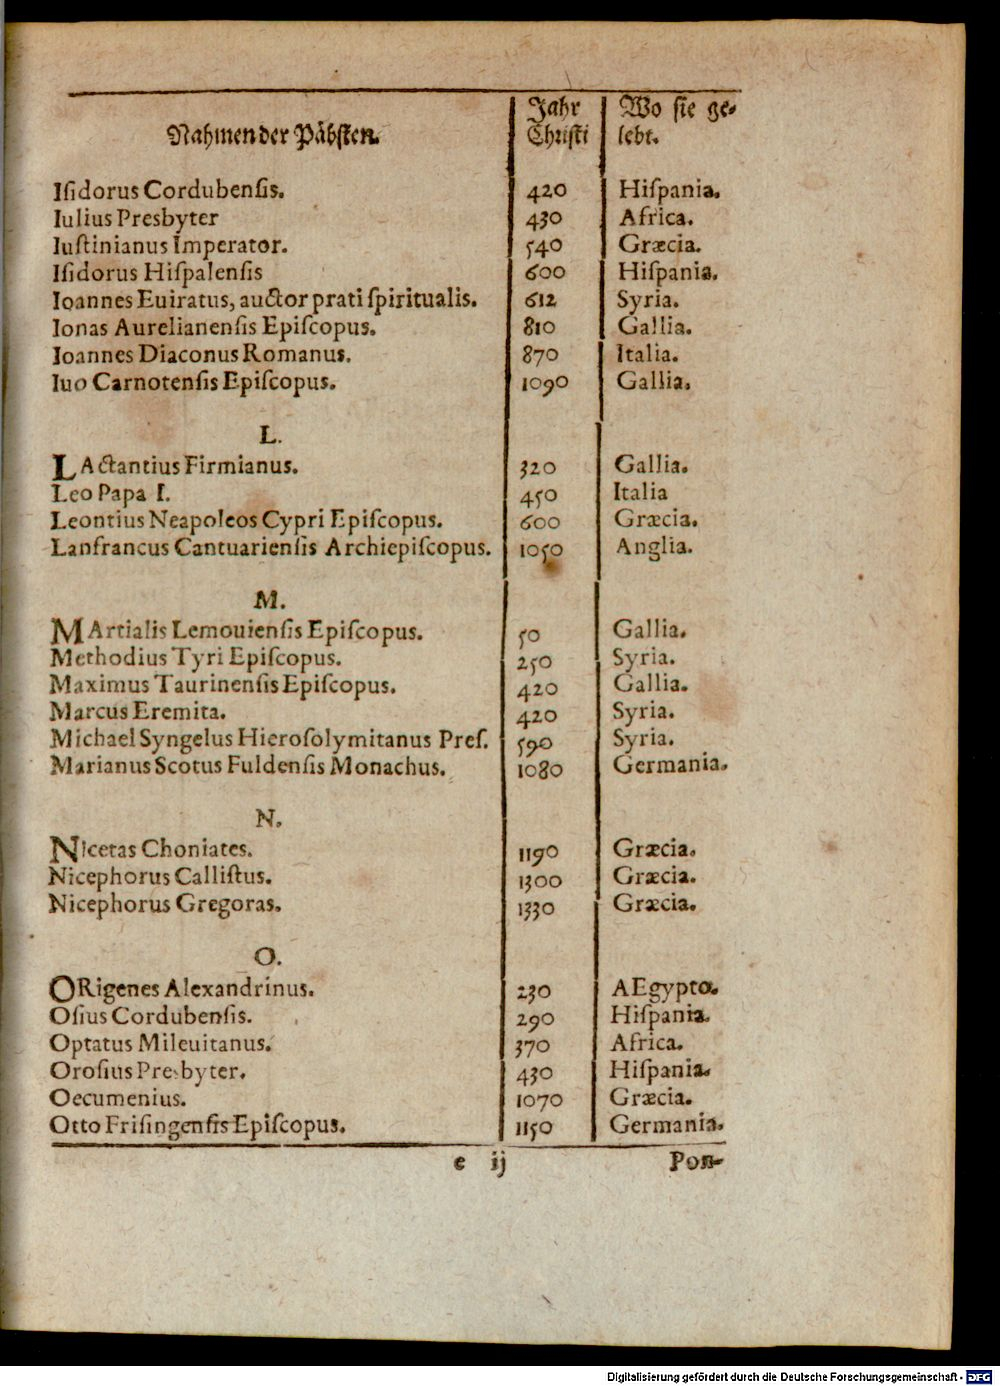 Nahmen der Päbsten. Jahr Christi Wo sie ge-
lebt.
Iſidorus Cordubenſis. 420 Hiſpania.
Iulius Presbyter 430 Africa.
Iuſtinianus Imperator. 540 Græcia.
Iſidorus Hiſpalenſis 600 Hiſpania.
Ioannes Euiratus, auctor prati ſpiritualis. 612 Syria.
Ionas Aurelianenſis Epiſcopus. 810 Gallia.
Ioannes Diaconus Romanus. 870 Italia.
Iuo Carnotenſis Epiſcopus. 1090 Gallia.
L.
LActantius Firmianus. 320 Gallia.
Leo Papa I. 450 Italia
Leontius Neapoleos Cypri Epiſcopus. 600 Græcia.
Lanfrancus Cantuarienſis Archiepiſcopus. 1050 Anglia.
M.
MArtialis Lemouienſis Epiſcopus. 50 Gallia.
Methodius Tyri Epiſcopus. 250 Syria.
Maximus Taurinenſis Epiſcopus. 420 Gallia.
Marcus Eremita. 420 Syria.
Michael Syngelus Hieroſolymitanus Preſ. 590 Syria.
Marianus Scotus Fuldenſis Monachus. 1080 Germania.
N.
Nicetas Choniates. 1190 Græcia.
Nicephorus Calliſtus. 1300 Græcia.
Nicephorus Gregoras. 1330 Græcia.
O.
ORigenes Alexandrinus. 230 AEgypto.
Oſius Cordubenſis. 290 Hiſpania.
Optatus Mileuitanus. 370 Africa.
Oroſius Presbyter. 430 Hiſpania.
Oecumenius. 1070 Græcia.
Otto Friſingenſis Epiſcopus. 1150 Germania.
e ij Pon-
Digitalisierung gefördert durch die Deutsche Forschungsgemeinschaft - DFG